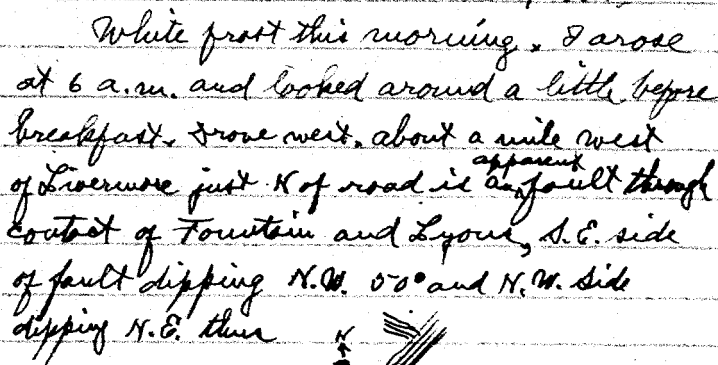 White frost this morning. I arose
at 6 a.m. and looked around a little before
breakfast. Drove west. about a mile west
of Livermore just N of road is an apparent fault through
contact of Fountain and Lyons, S.E. side
of fault dipping N.W. 50° and N.W. side
dipping N.E. thus
N